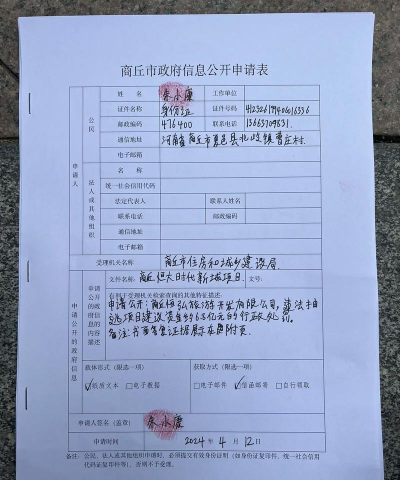 商丘市政府信息公开申请表
申请人
公民
姓 名 朱小康 工作单位
证件名称 身份证 证件号码
邮政编码 476400 联系电话 13663709831
通信地址 河南省商丘市夏邑县北岭镇曹庄村
电子邮箱
法人或其他组织
名 称
统一社会信用代码
法定代表人 联系人姓名
联系电话 邮政编码
通信地址
电子邮箱
受理机关名称 商丘市住房和城乡建设局
申请公开的政府信息
申请公开的政府信息的内容描述
文件名称:商丘恒大时代新城项目 文号:
有利于受理机关检索查询的其他特征描述:
申请公开:商丘恒弘旅游开发有限公司,违法
项目建设资金 亿元的行政处罚。
备注:书面 证据展示在附页.
载体形式(限选一项) 获取方式(限选一项)
☑纸质文本 □电子数据 □电子邮件 ☑信函邮寄 □自行领取
申请人签名(盖章) 朱小康
申请时间 2024 年 4 月 12 日
备注:公民、法人或其他组织申请时,应提交有效身份证明(如身份证复印件、统一社会信用
代码证复印件等),否则不予受理。